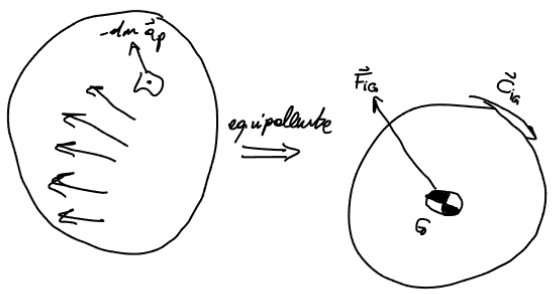 -dm a⃗p
equipollente
F⃗iG
C⃗iG
G